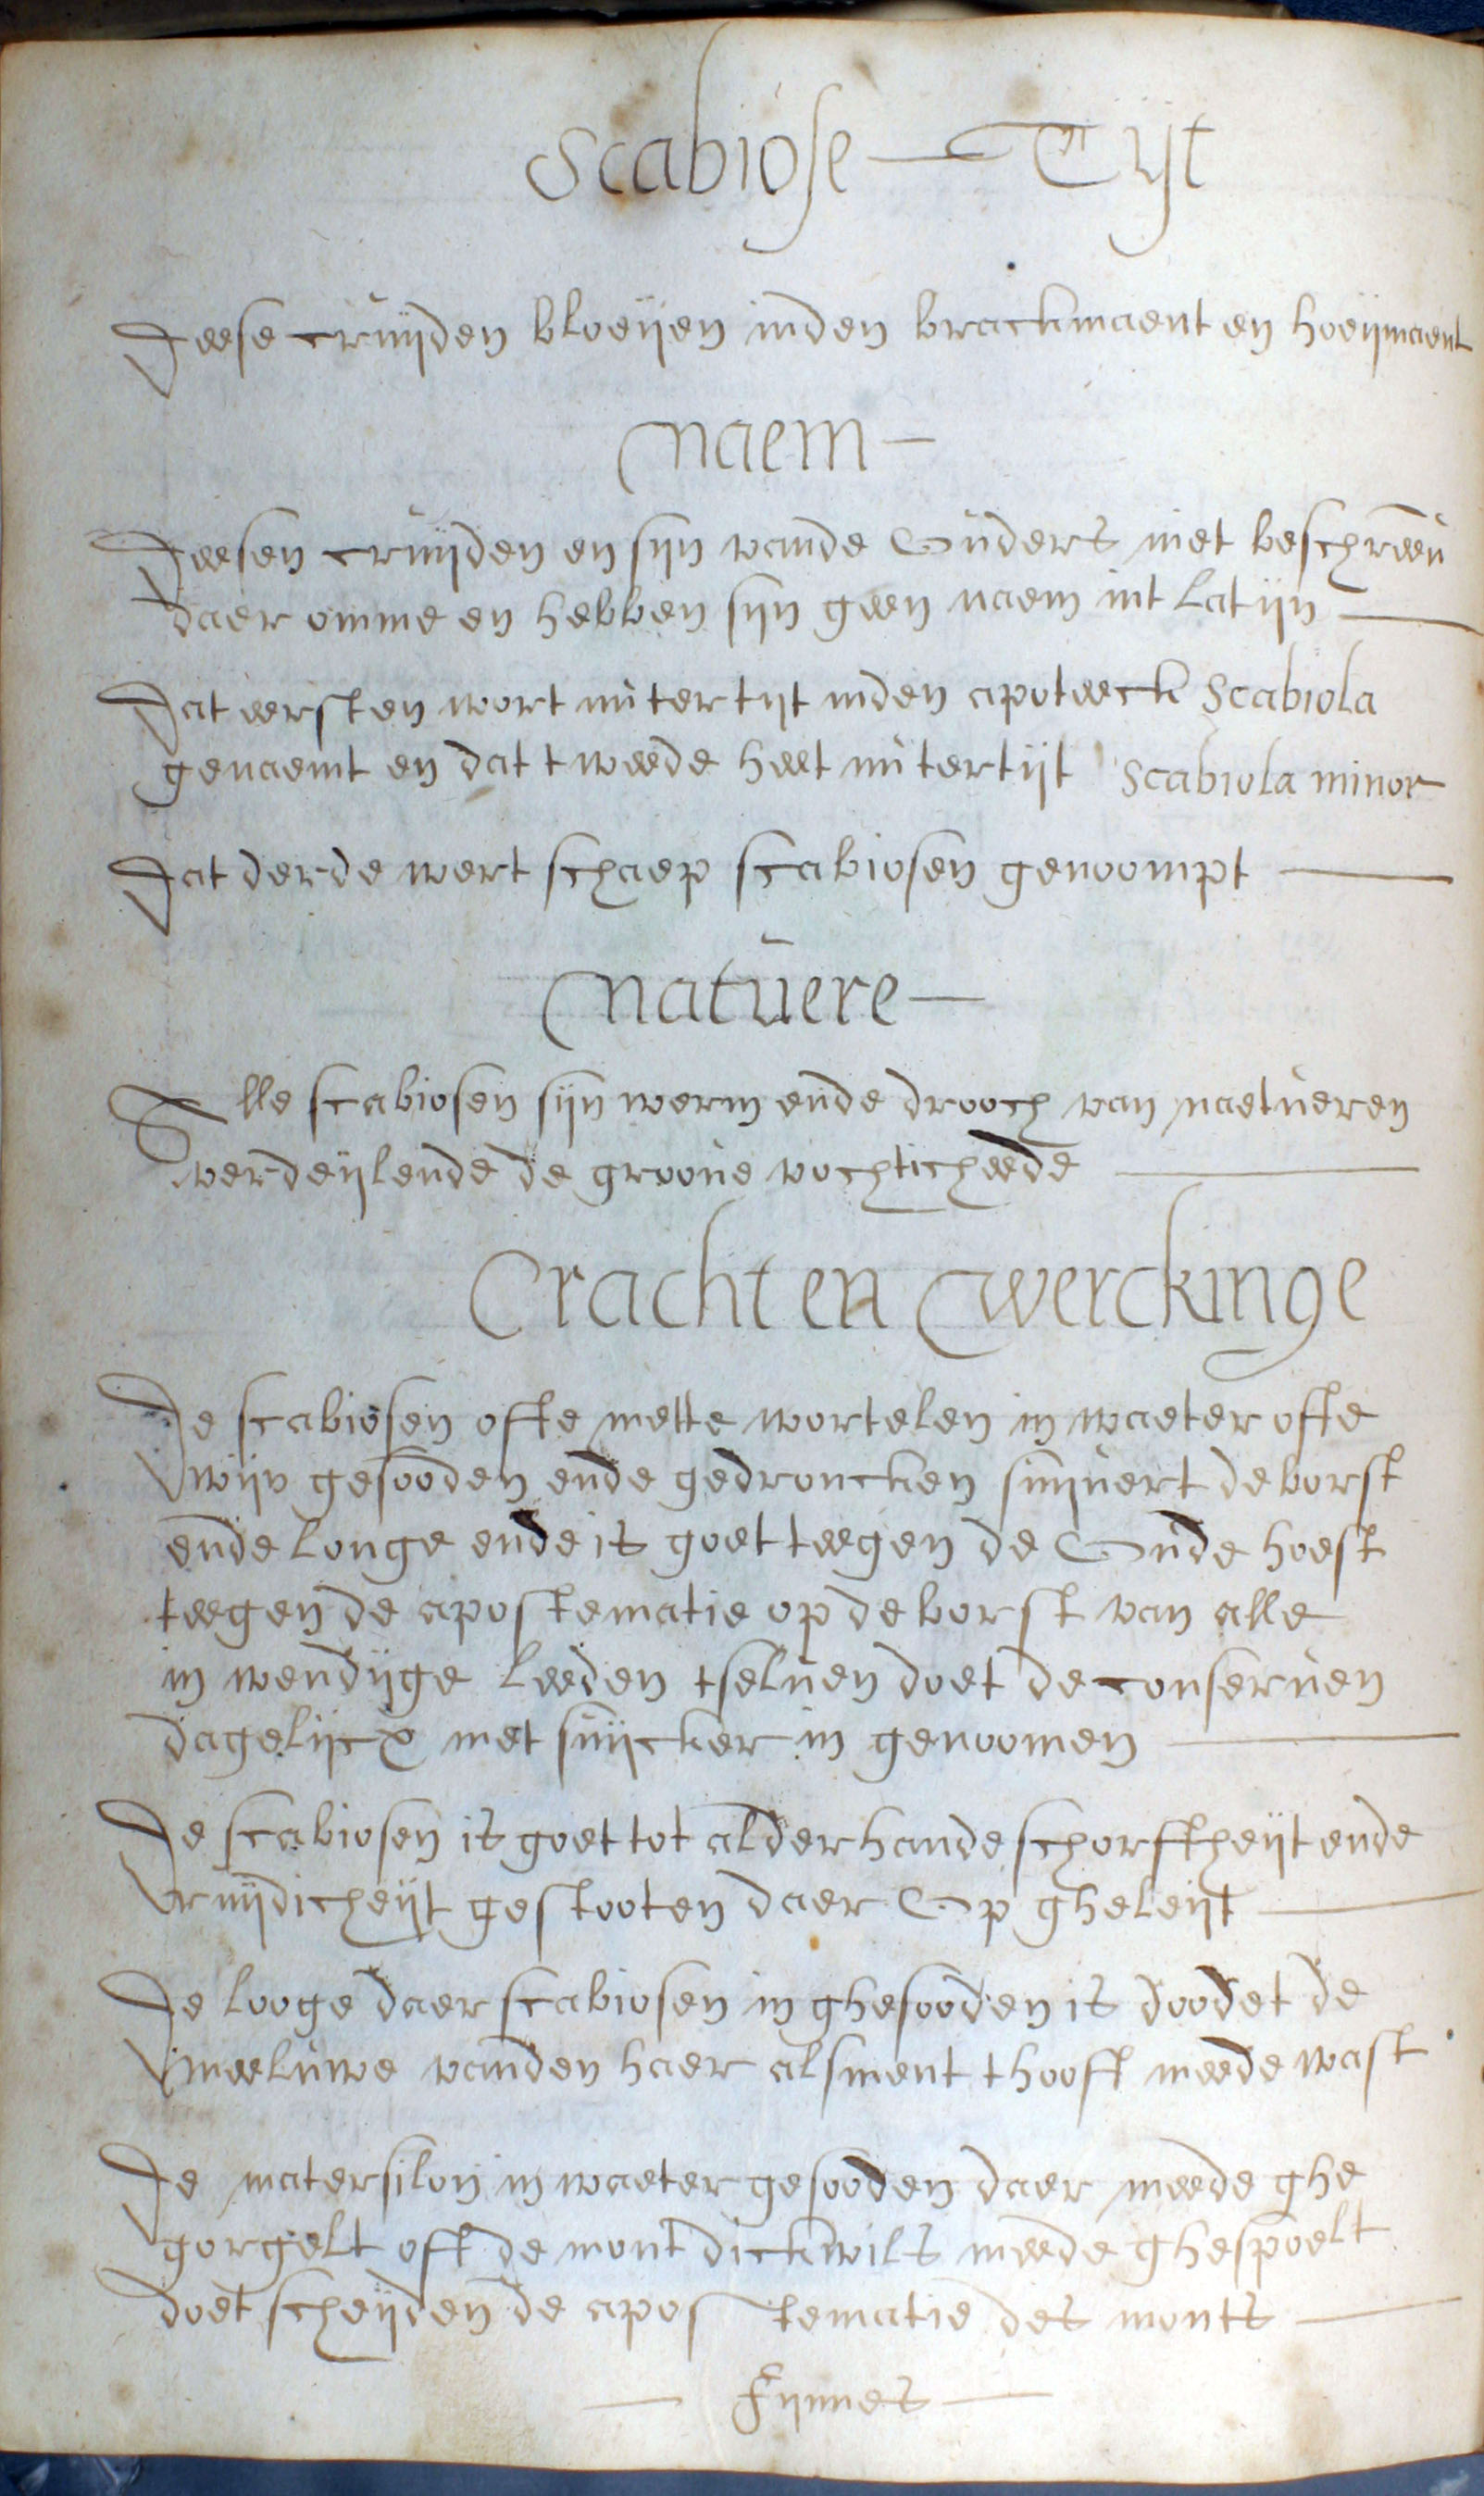 Scabiose — Tijt
Deese cruijden bloeijen inden brackmaent en hoeijmaent
Naem —
Deesen cruijden en sijn vande Ouders niet beschreeu
daer omme en hebben sijn geen naem int Latijn —
Dat eersten wort nu ter tijt inden apoteeck Scabiola
genaemt en dat tweede heet nu tertijt Scabiola minor
Dat derde wert schaep scabiosen genoompt —
Natuere —
Alle scabiosen sijn werm ende drooch van naetueren
verdeijlende de groove vochticheede —
Cracht en Werckinge
De scabiosen ofte mette wortelen in waeter ofte
wijn gesooden ende gedroncken suijvert de borst
ende Longe ende is goet teegen de Oude hoest
teegen de apostematie op de borst van alle
in wendijge Leeden tseluen doet de conseruen
dagelijcx met suijcker in genoomen —
De scabiosen is goet tot alderhande schorftheijt ende
ruijdicheijt gestooten daer Op gheleijt —
De looge daer scabiosen in ghesooden is doodet de
meeluwe vanden haer alsment thooft meede wast
De matersilon in waeter gesooden daer meede ghe
gorgelt oft de mont dickwils meede ghespoelt
doet scheijden de apos tematie des monts —
— Fijnnes —